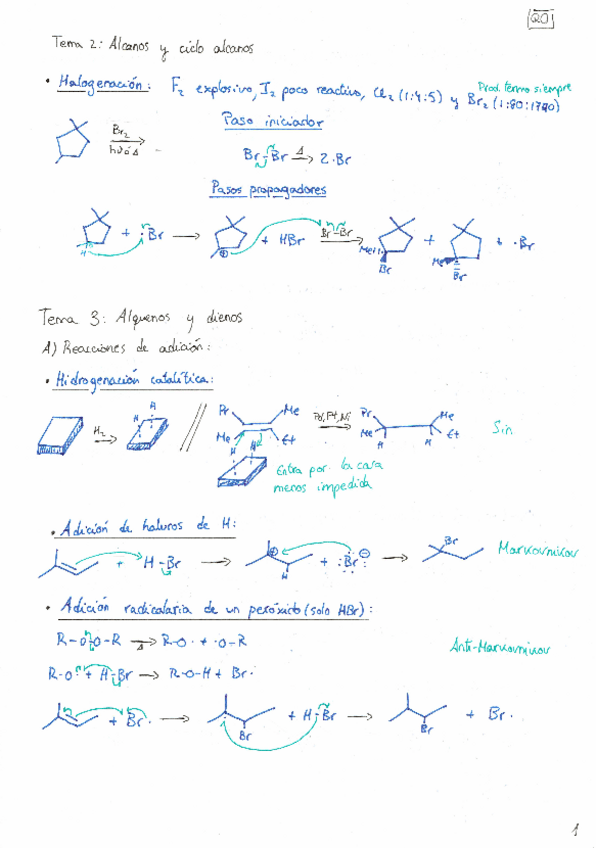 QO
Tema 2: Alcanos y ciclo alcanos
• Halogenación: F2 explosivo, I2 poco reactivo, Cl2 (1:4:5) y Br2 (1:80:1700)
Prod. termo siempre
Paso iniciador
Br2
hν ó Δ
Br-Br Δ→ 2·Br
Pasos propagadores
H + :Br → + HBr Br-Br → Me Br + Me Br + ·Br
Tema 3: Alquenos y dienos
A) Reacciones de adición:
• Hidrogenación catalítica:
H2 → H H // Pr Me Me Et H H Pd, Pt, Ni → Pr Me Me Et H H Sin
Entra por la cara
menos impedida
• Adición de haluros de H:
+ H-Br → ⊕ H + :Br: ⊖ → Br Markovnikov
• Adición radicalaria de un peróxido (solo HBr):
R-O-O-R Δ→ R-O· + ·O-R
Anti-Markovnikov
R-O· + H-Br → R-O-H + Br·
+ Br· → Br + H-Br → Br + Br·
1